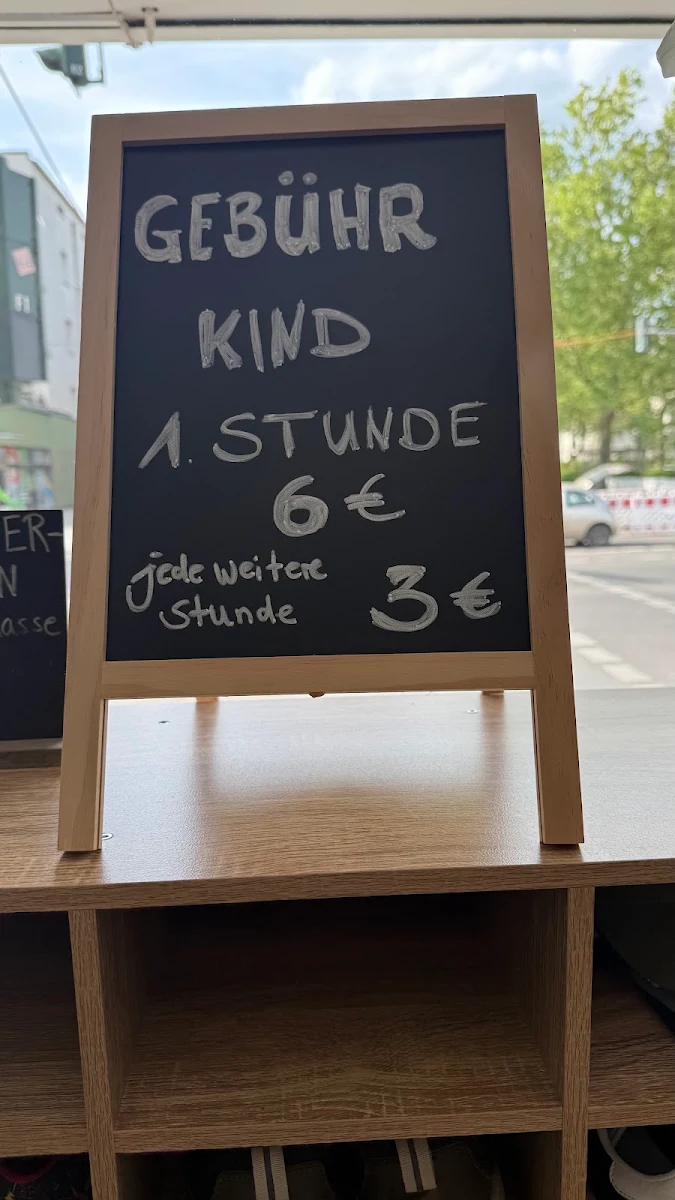 GEBÜHR
KIND
1. STUNDE
6 €
jede weitere
Stunde
3 €
ER-
N
asse